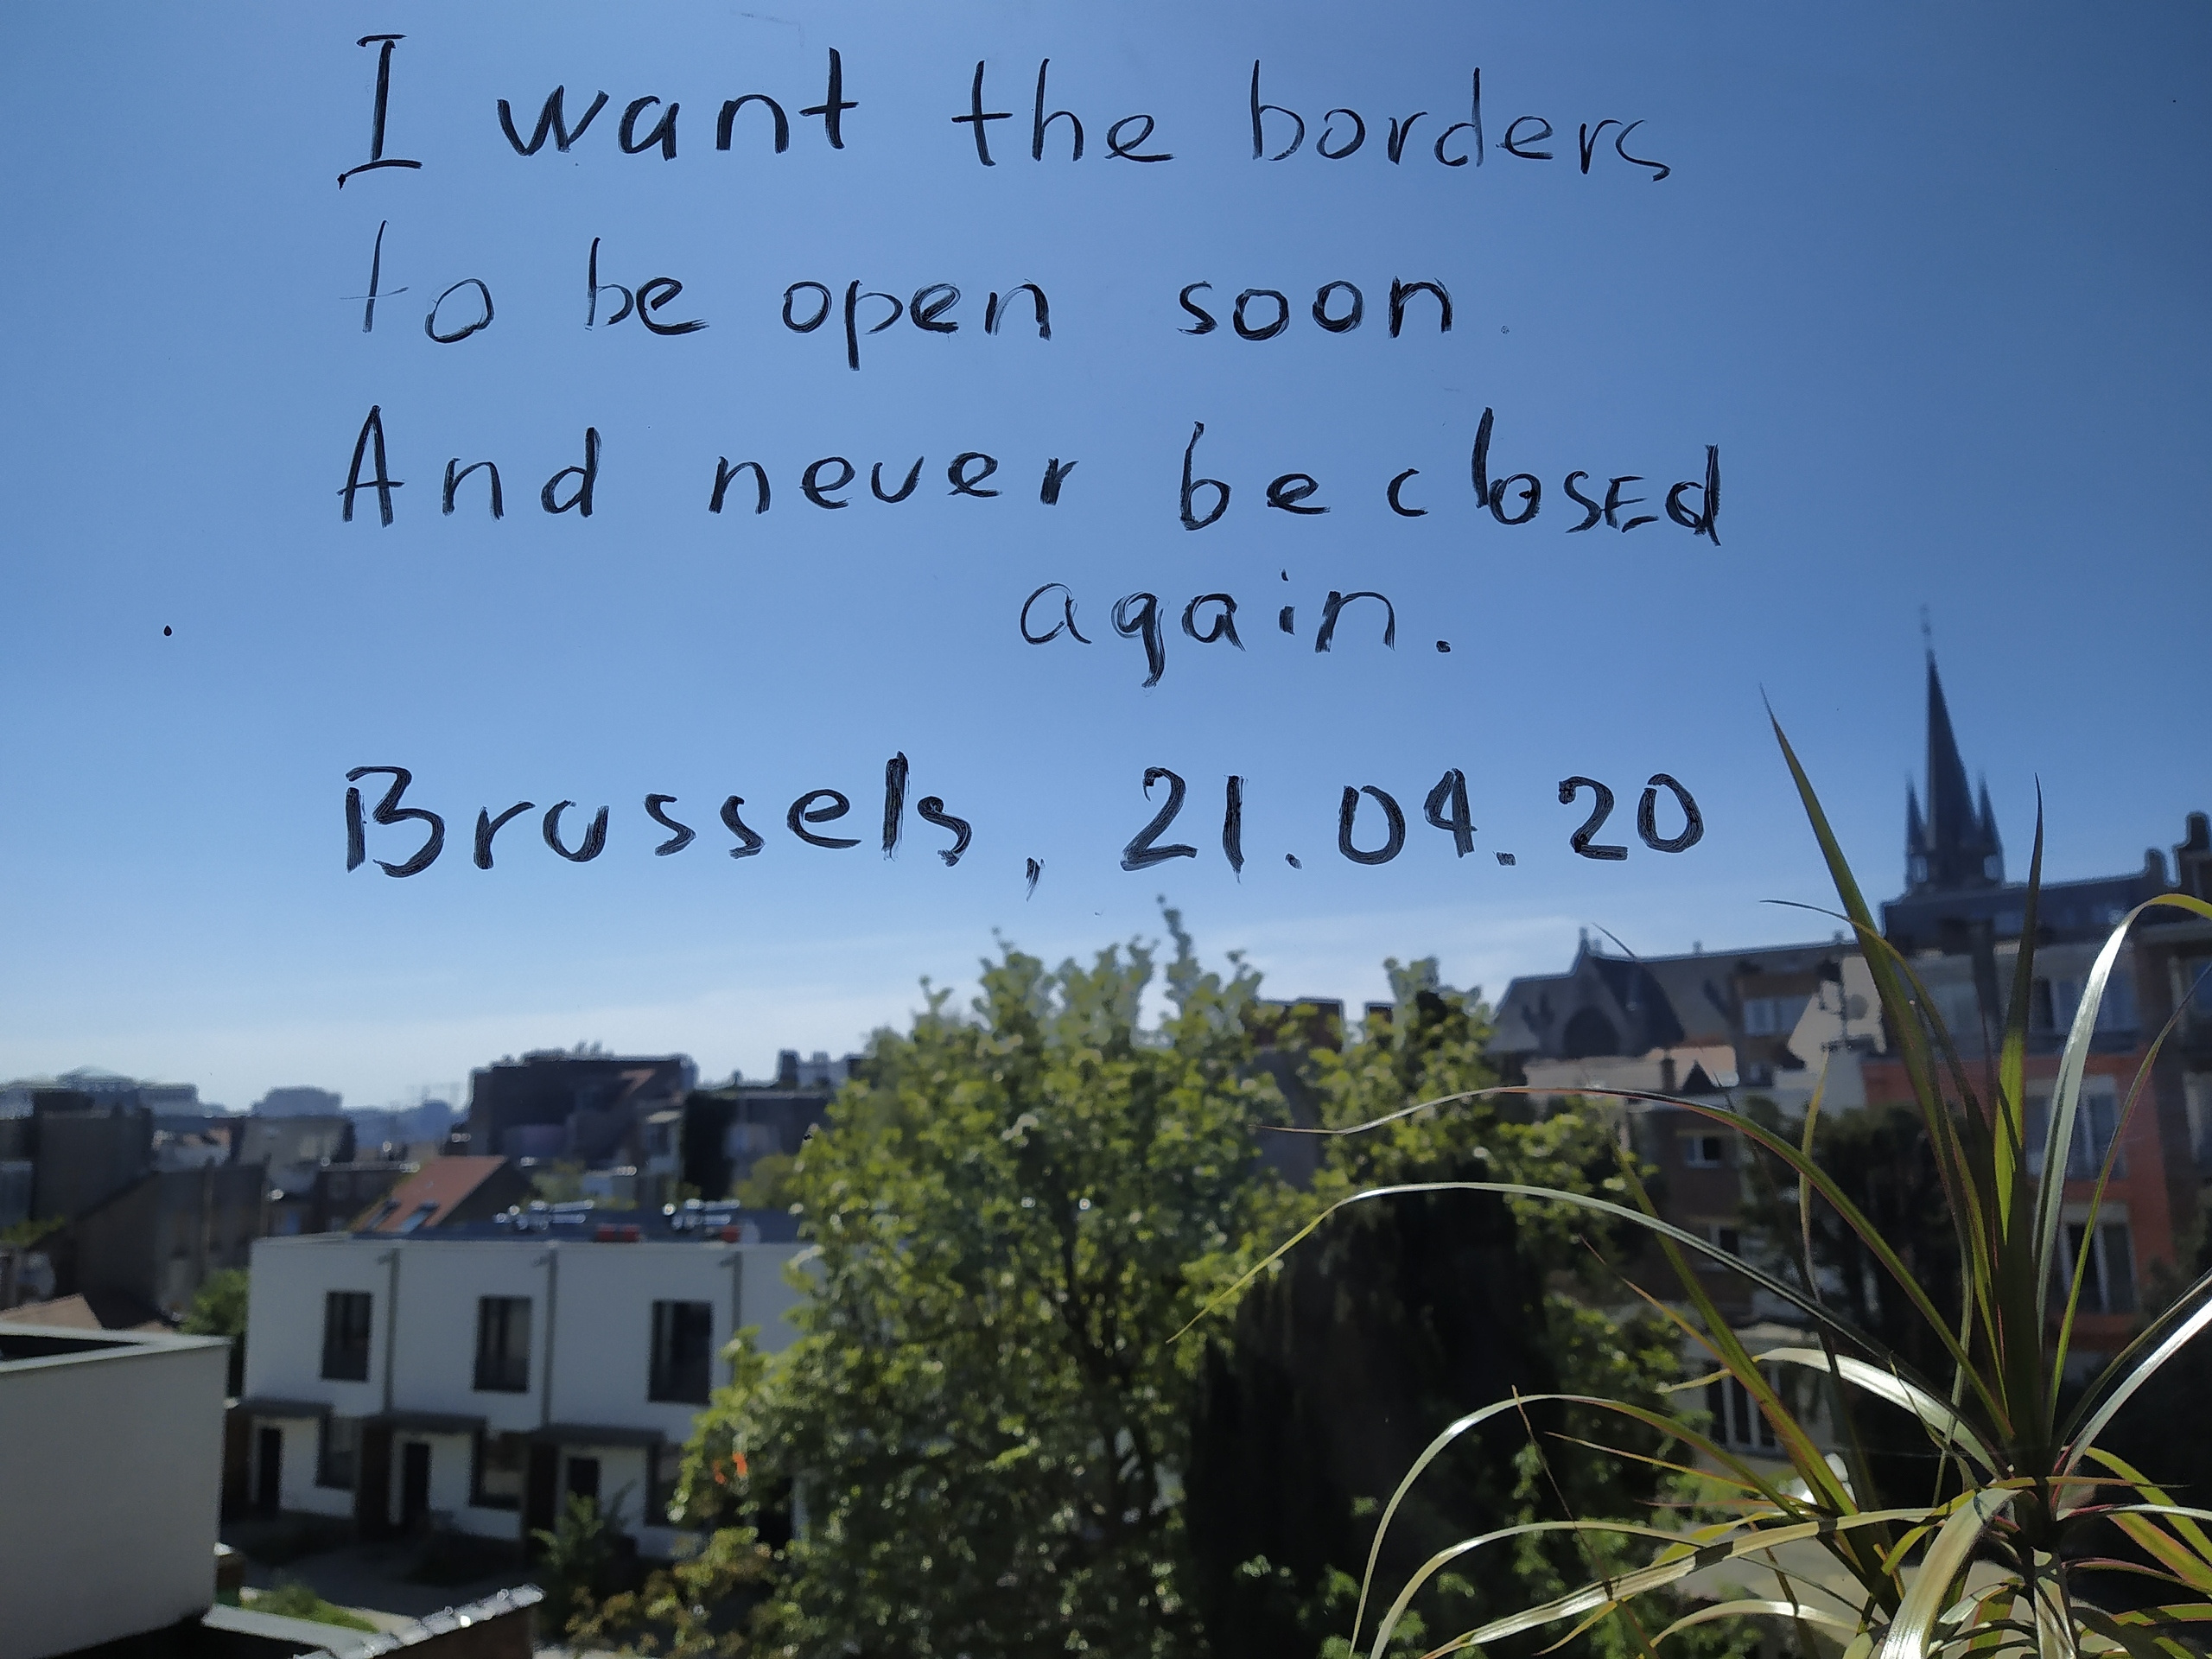 I want the borders
to be open soon.
And never be closed
again.
Brussels, 21.04.20